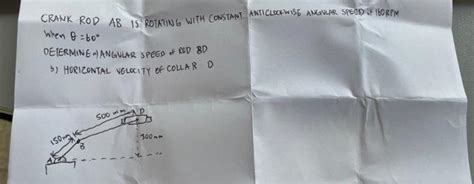 CRANK ROD AB IS ROTATING WITH CONSTANT ANTICLOCKWISE ANGULAR SPEED of 160 RPM
When θ = 60°
DETERMINE a) ANGULAR SPEED of ROD BD
b) HORIZONTAL VELOCITY OF COLLAR D
500 mm
D
150m
B
300mm
A